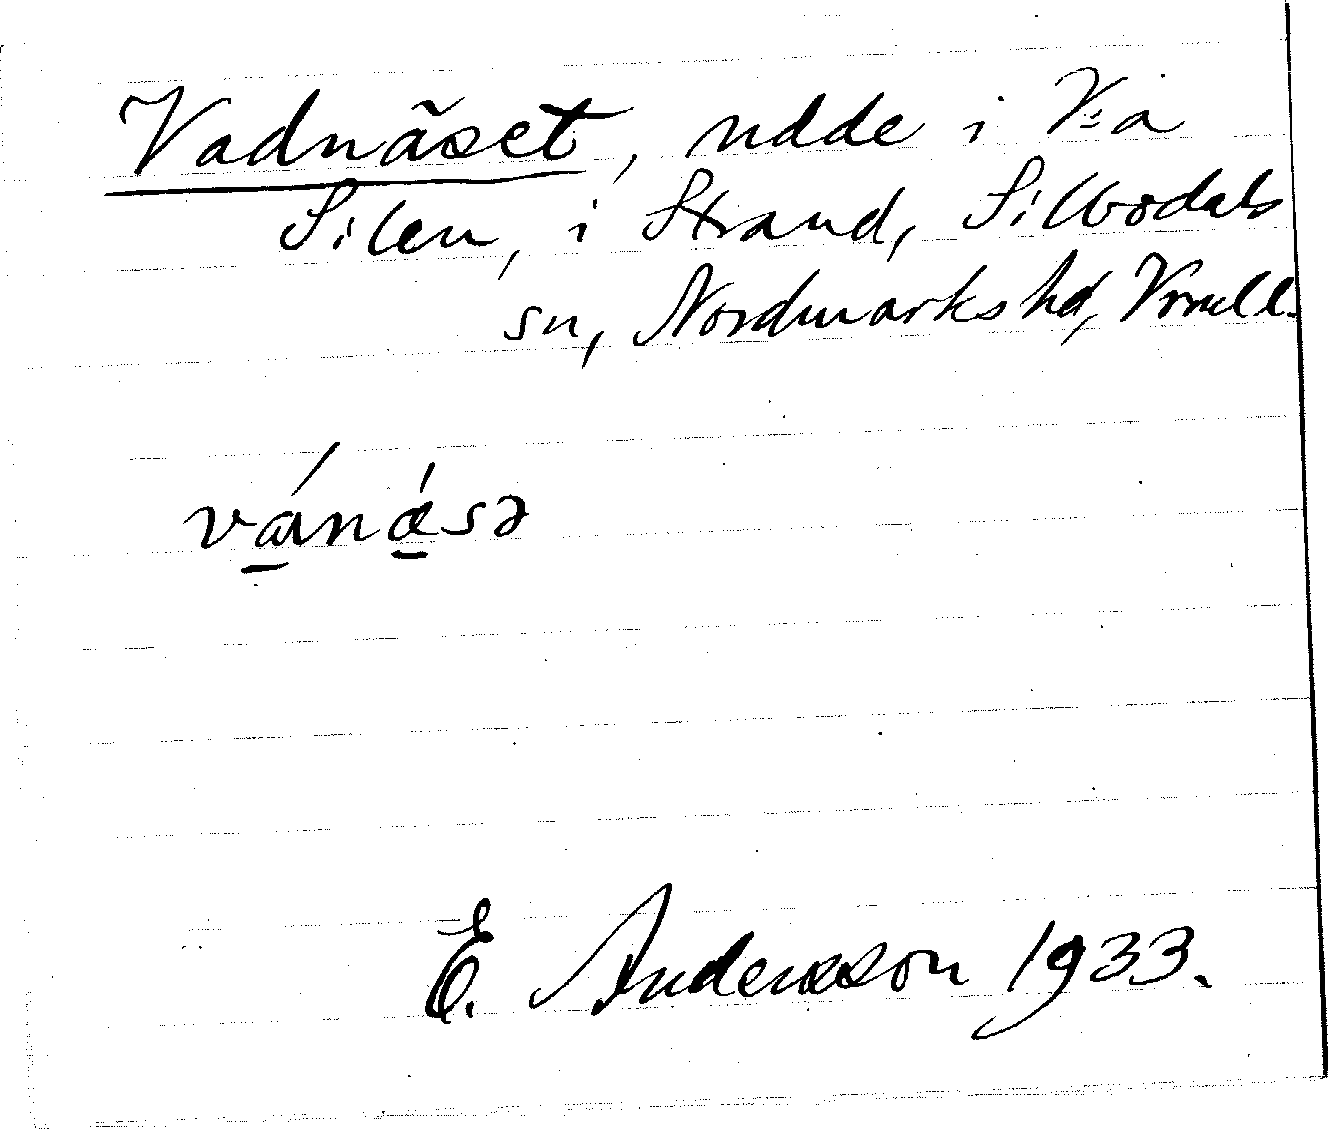 Vadnäset, udde i V:a
Silen, i Strand, Silbodals
sn, Nordmarks hd, Vrml.
vá̱nǽ̱sə
E. Andersson 1933.